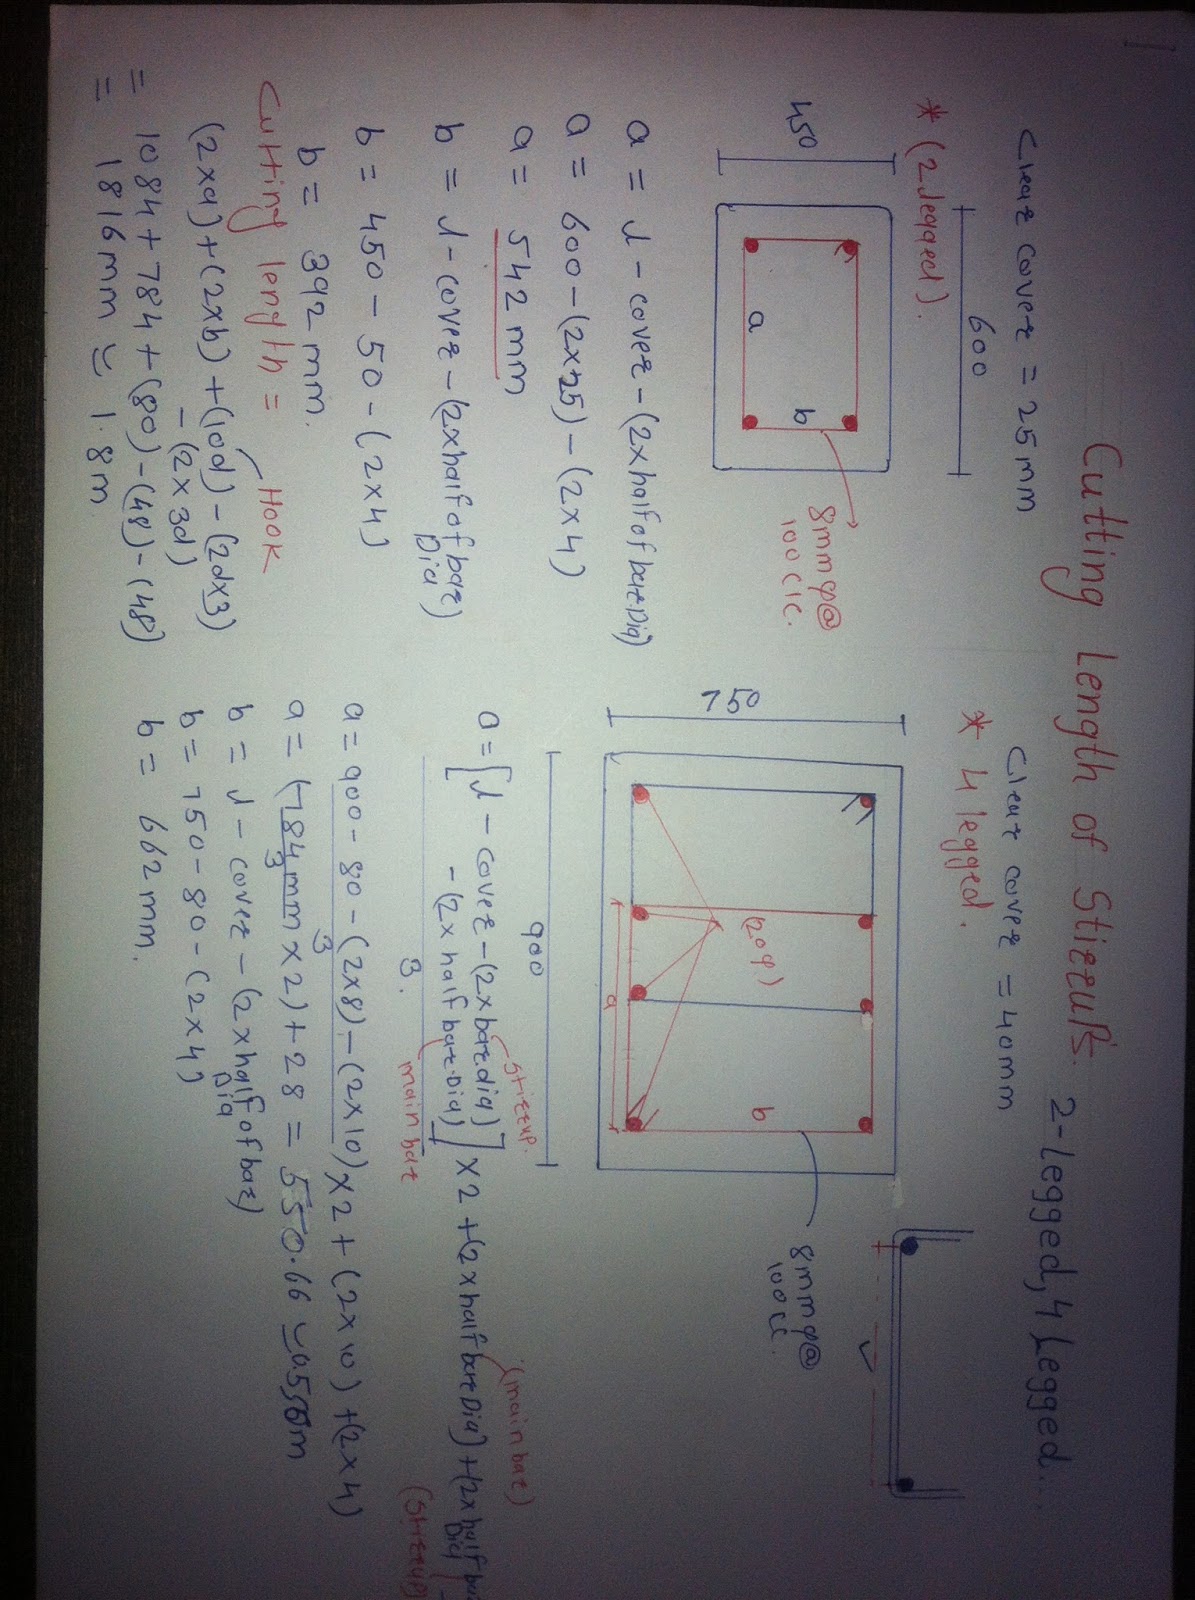 Cutting Length of Stirrups. 2-Legged, 4 Legged...
Clear cover = 25mm
* (2 legged).
600
450
a
b
8mmφ@
100 c/c.
a = l - cover - (2xhalf of bar Dia)
a = 600 - (2x25) - (2x4)
a = 542mm
b = l - cover - (2xhalf of bar)
Dia
b = 450 - 50 - (2x4)
b = 392mm.
Cutting length =
Hook
(2xa) + (2xb) + (10d) - (2dx3)
- (2x3d)
= 1084 + 784 + (80) - (48) - (48)
= 1816mm ≃ 1.8m
Clear cover = 40mm
* 4 legged.
750
(20φ)
a
b
8mmφ@
100 c/c.
900
a = [l - cover - (2xbar dia)
- (2x half bar Dia)] x2 + (2xhalf bar Dia) + (2x half bar
Dia
3.
stirrup.
main bar
(main bar)
(Stirrup)
a = 900 - 80 - (2x8) - (2x10) x2 + (2x10) + (2x4)
3
a = (784mm x2) + 28 = 550.66
3
b = l - cover - (2xhalf of bar)
Dia
b = 750 - 80 - (2x4)
b = 662mm.